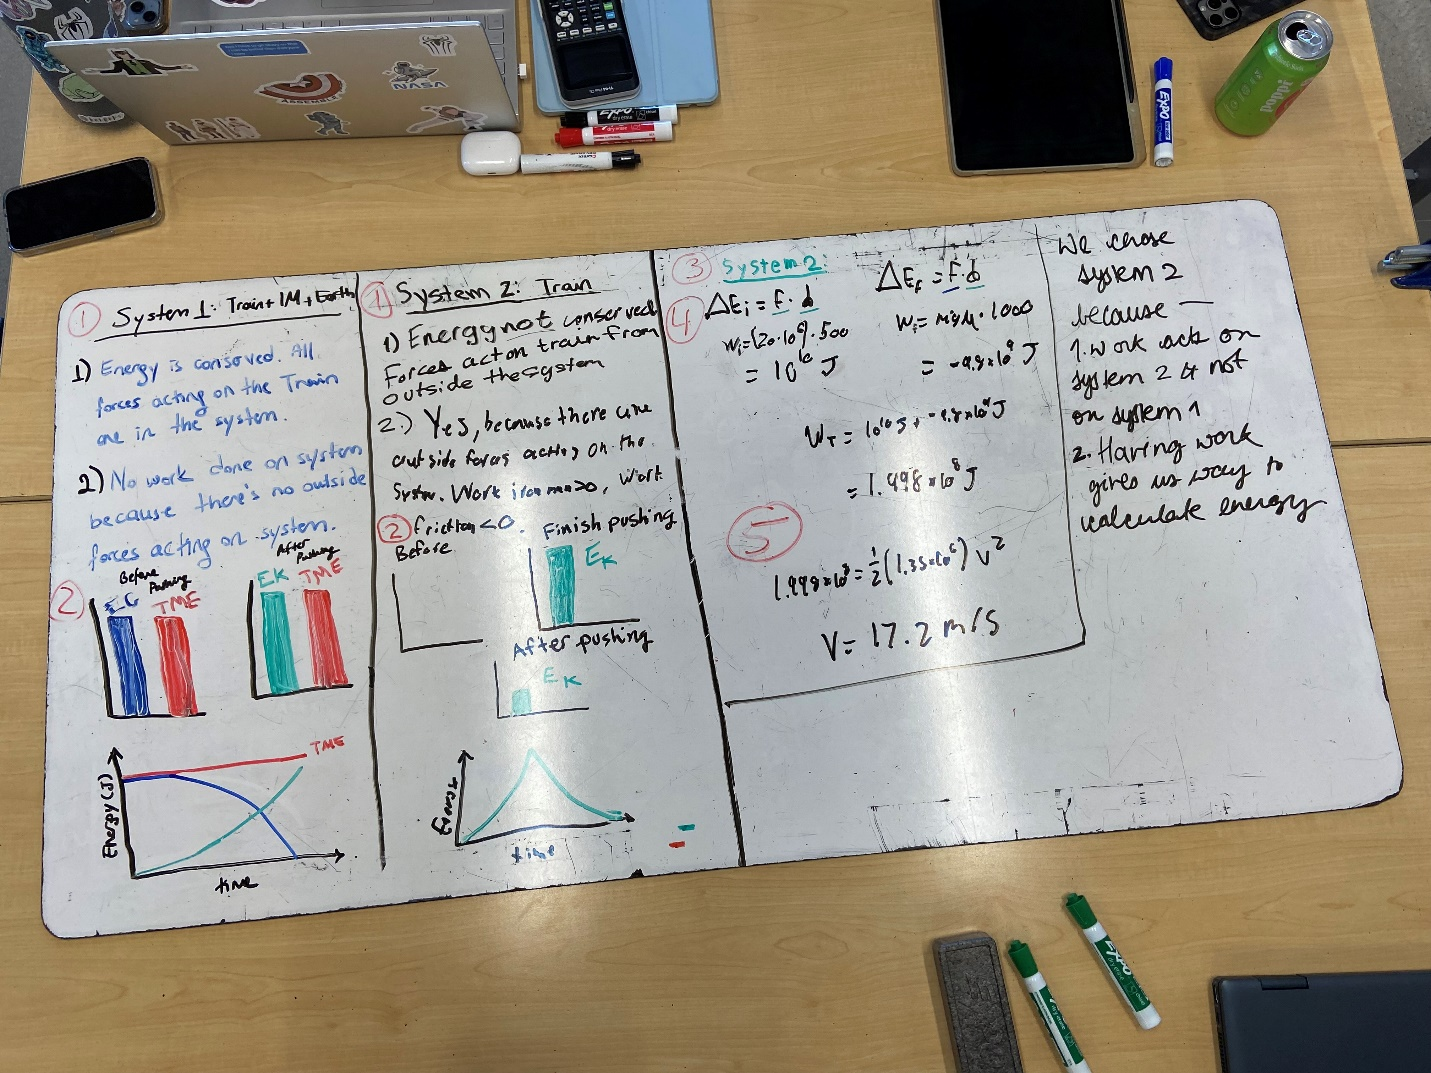 1
System 1: Train + IM + Earth
1) Energy is conserved. All
forces acting on the Train
are in the system.
2) No work done on system
because there's no outside
forces acting on system.
2
Before
Pushing
EG
TME
After
Pushing
EK
TME
TME
Energy (J)
time
1
System 2: Train
1) Energy not conserved
Forces act on train from
outside the system
2.) Yes, because there are
outside forces acting on the
System. Work iron man>0, Work
friction <0.
2
Before
Finish pushing
EK
After pushing
EK
time
3
System 2:
4
ΔEi = F · d
Wi=(20·10⁶)·500
= 10¹⁰ J
ΔEf = F·d
1000
= -9.8×10⁹ J
WT = 10¹⁰J + -9.8×10⁹J
= 1.998×10⁸ J
5
1.998×10⁸ = 1/2 (1.35×10⁶) V²
V = 17.2 m/s
We chose
system 2
because —
1. work acts on
system 2 & not
on system 1
2. Having work
gives us way to
calculate energy
NASA
ASSEMBLE
EXPO
dry erase
EXPO
poppi
EXPO